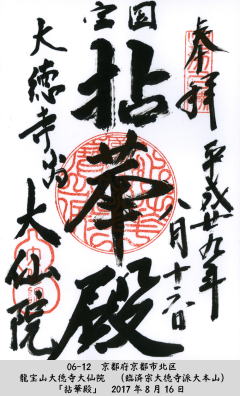 奉拝
平成廿九年
八月十六日
国宝
拈華殿
大徳寺内
大仙院
06-12　京都府京都市北区
龍宝山大徳寺大仙院　（臨済宗大徳寺派大本山）
「拈華殿」　2017年8月16日